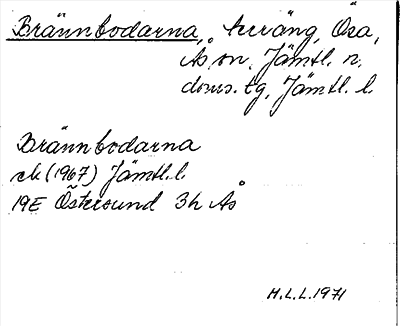 Brännbodarna, teräng, Ösa,
Ås sn, Jämtl. n.
doms. tg, Jämtl. l.
Brännbodarna
ek (1967) Jämtl. l.
19E Östersund 3h Ås
H.L.L. 1971